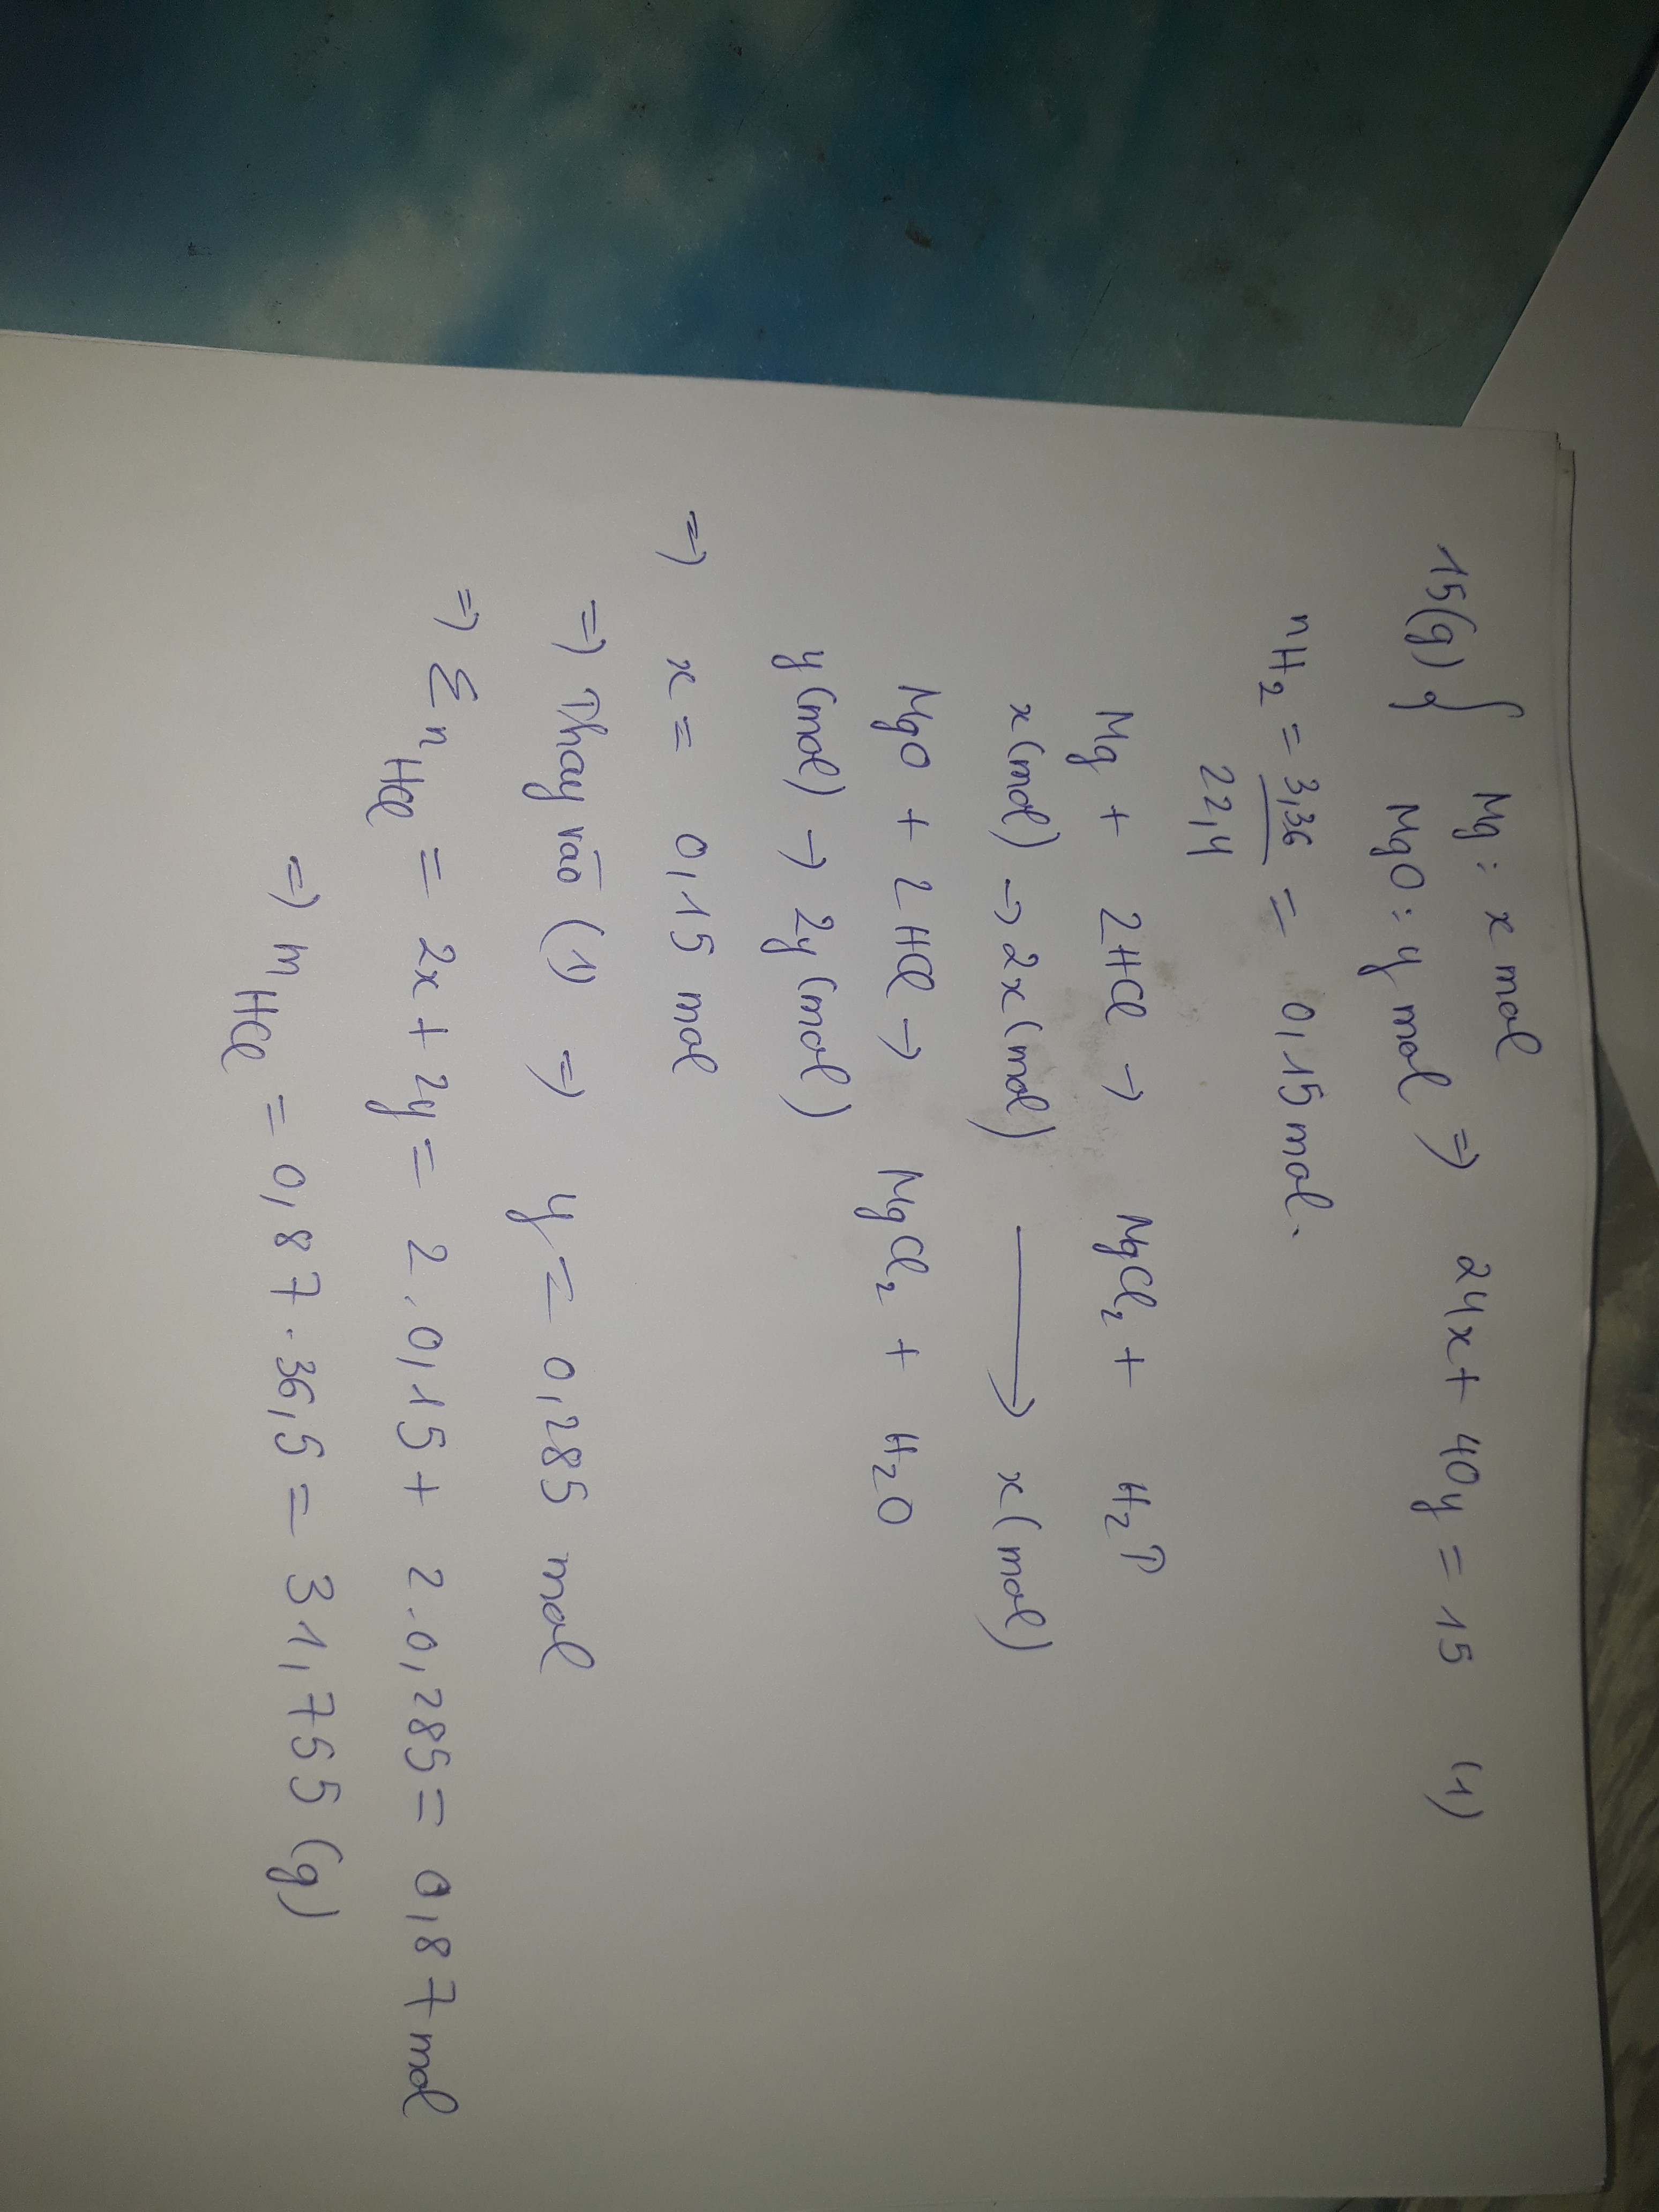 15(g) { Mg: x mol
MgO: y mol => 24x + 40y = 15 (1)
nH₂ = 3,36/22,4 = 0,15 mol.
Mg + 2HCl → MgCl₂ + H₂↑
x(mol) → 2x(mol) ⟶ x(mol)
MgO + 2HCl → MgCl₂ + H₂O
y(mol) → 2y(mol)
=> x = 0,15 mol
=> Thay vào (1) => y = 0,285 mol
=> Σn HCl = 2x + 2y = 2.0,15 + 2.0,285 = 0,87 mol
=> m HCl = 0,87.36,5 = 31,755 (g)